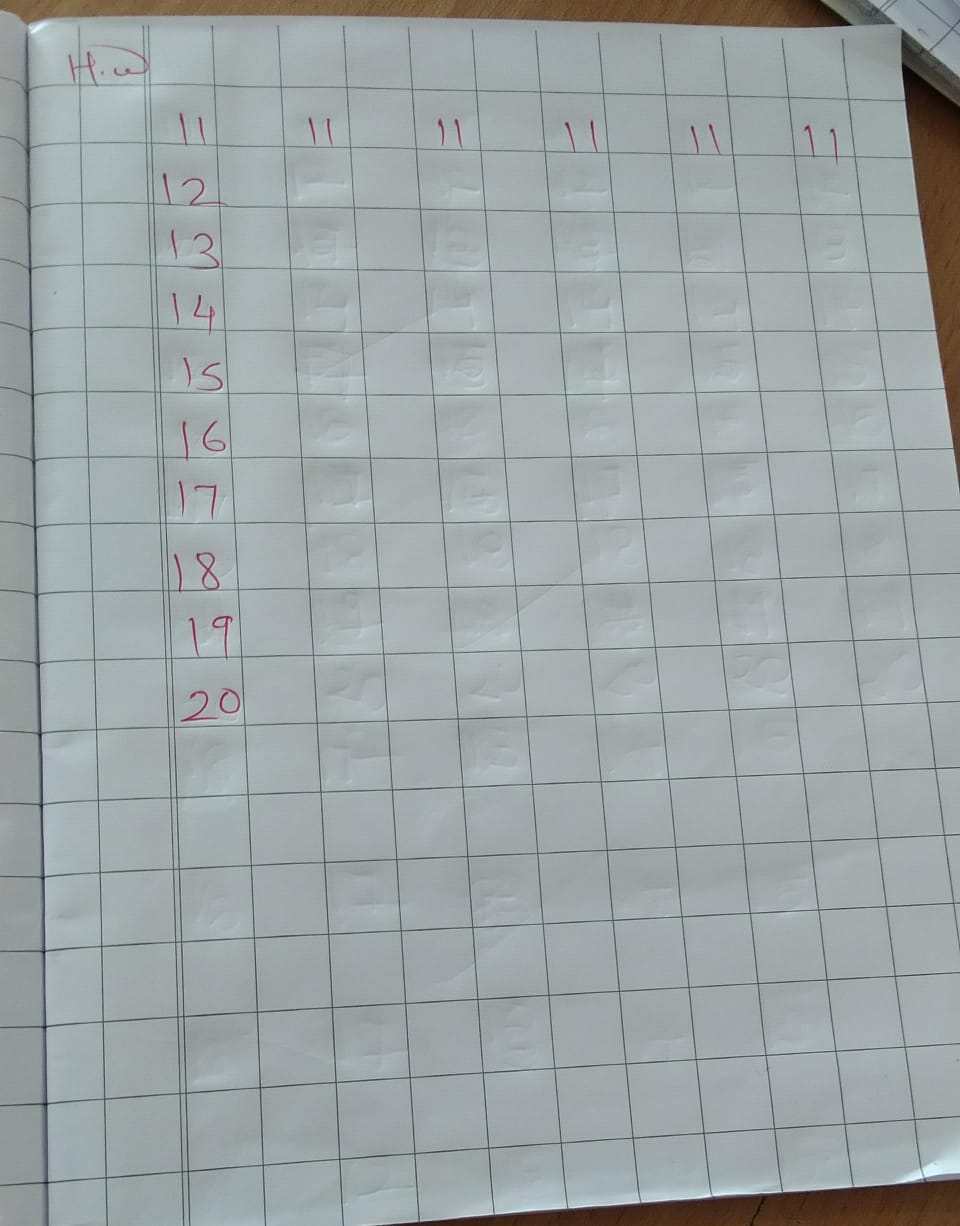 H.w
11 11 11 11 11 11
12
13
14
15
16
17
18
19
20